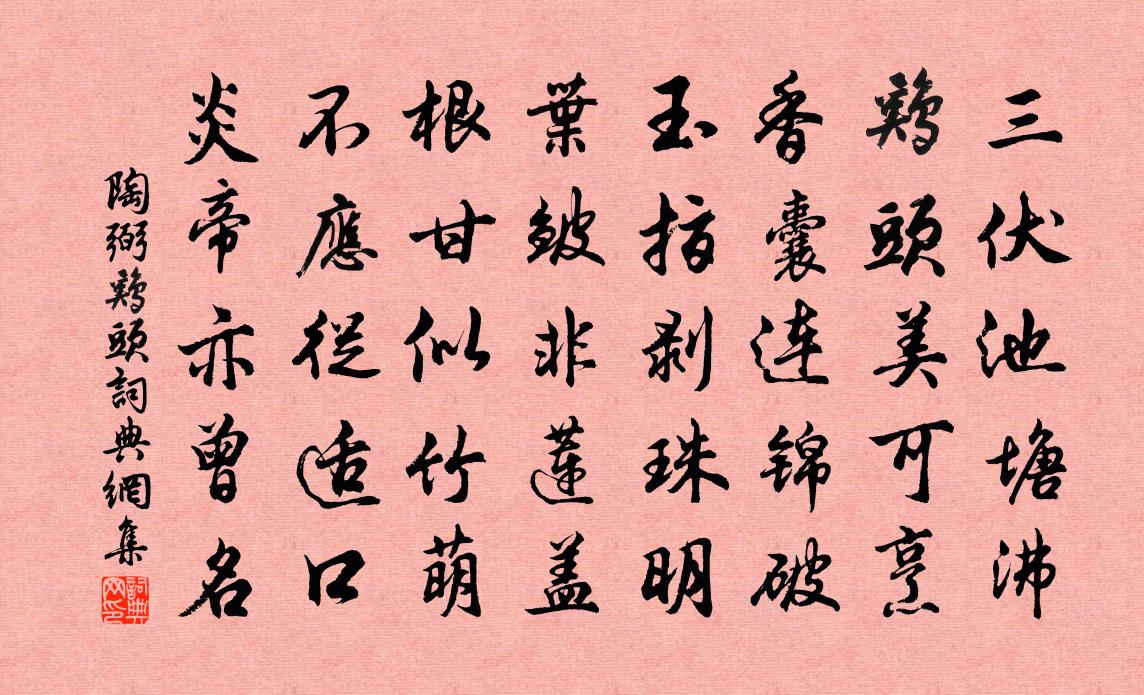 三伏池塘沸
鷄頭美可烹
香囊連锦破
玉指剥珠明
葉皴非蓮盖
根甘似竹萌
不應從适口
炎帝亦曾名
陶弼鷄頭詞典網集
詞典網印